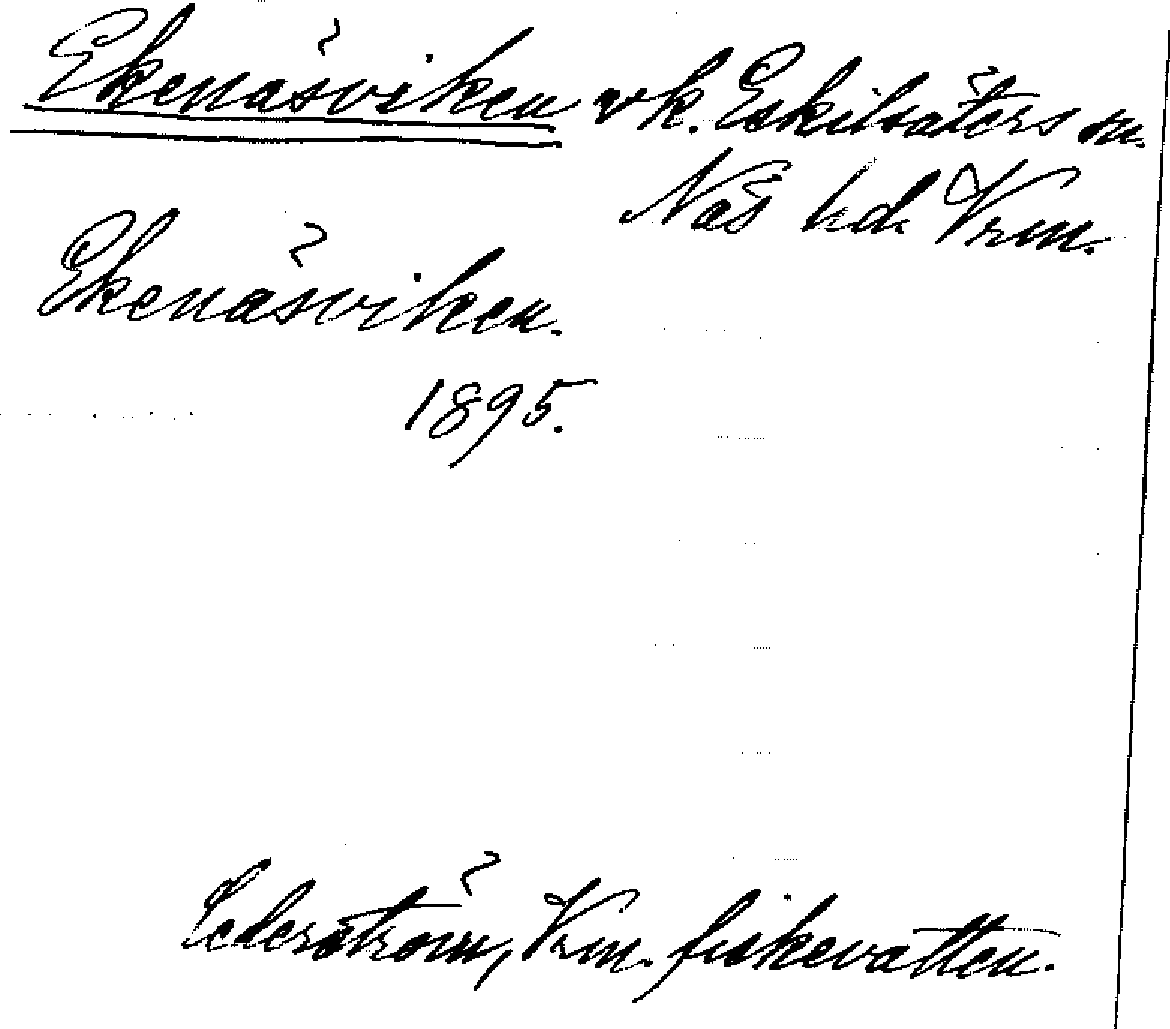 Ekenäsviken vk. Eskilsäters sn.
Näs hd. Vrm.
Ekenäsviken.
1895.
Cederström, Vrm. fiskevatten.